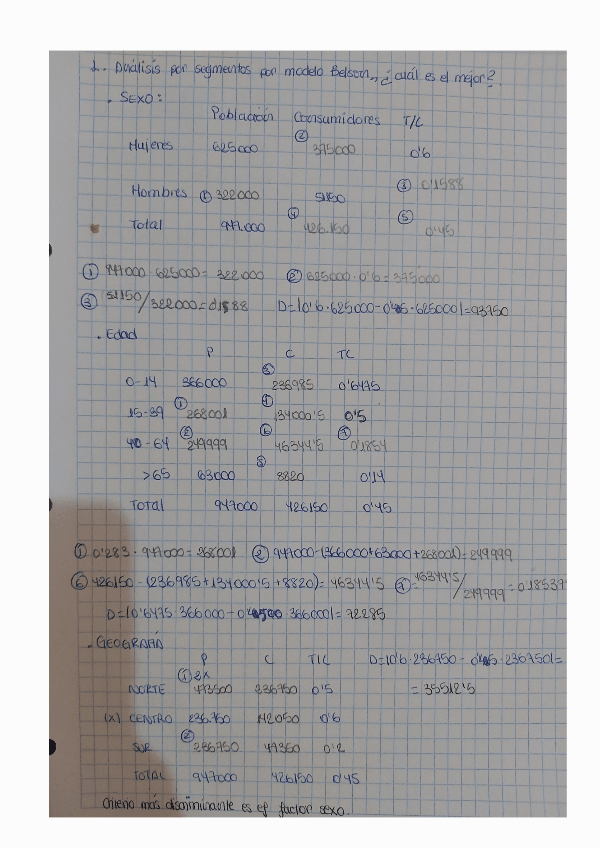 1. Análisis por segmentos por modelo Belson, ¿cuál es el mejor?
. SEXO:
Población Consumidores T/C
Mujeres 625000 ② 375000 0'6
Hombres ① 322000 51150 ③ 0'1588
Total 947.000 ④ 426.150 ⑤ 0'45
① 947000-625000= 322000 ② 625000·0'6=375000
③ 51150/322000=0'1588 D=|0'6·625000-0'45·625000|=93750
. Edad
P C TC
0-14 366000 ③ 236985 0'6475
15-39 ① 268001 ④ 134000'5 0'5
40-64 ② 249999 ⑥ 46344'5 ⑦ 0'1854
>65 63000 ⑤ 8820 0'14
Total 947000 426150 0'45
① 0'283·947000=268001 ② 947000-(366000+63000+268001)=249999
⑥ 426150-(236985+134000'5+8820)=46344'5 ⑦ =46344'5/249999=0'18537
D=|0'6475·366000-0'4500·366000|=72285
. GEOGRAFÍA
P C T/C D=|0'6·236750-0'45·236750|=
① 2x
NORTE 473500 236750 0'5 = 35512'5
(x) CENTRO 236.750 142050 0'6
②
SUR 236750 47350 0'2
TOTAL 947000 426150 0'45
Criterio más discriminante es el factor sexo.